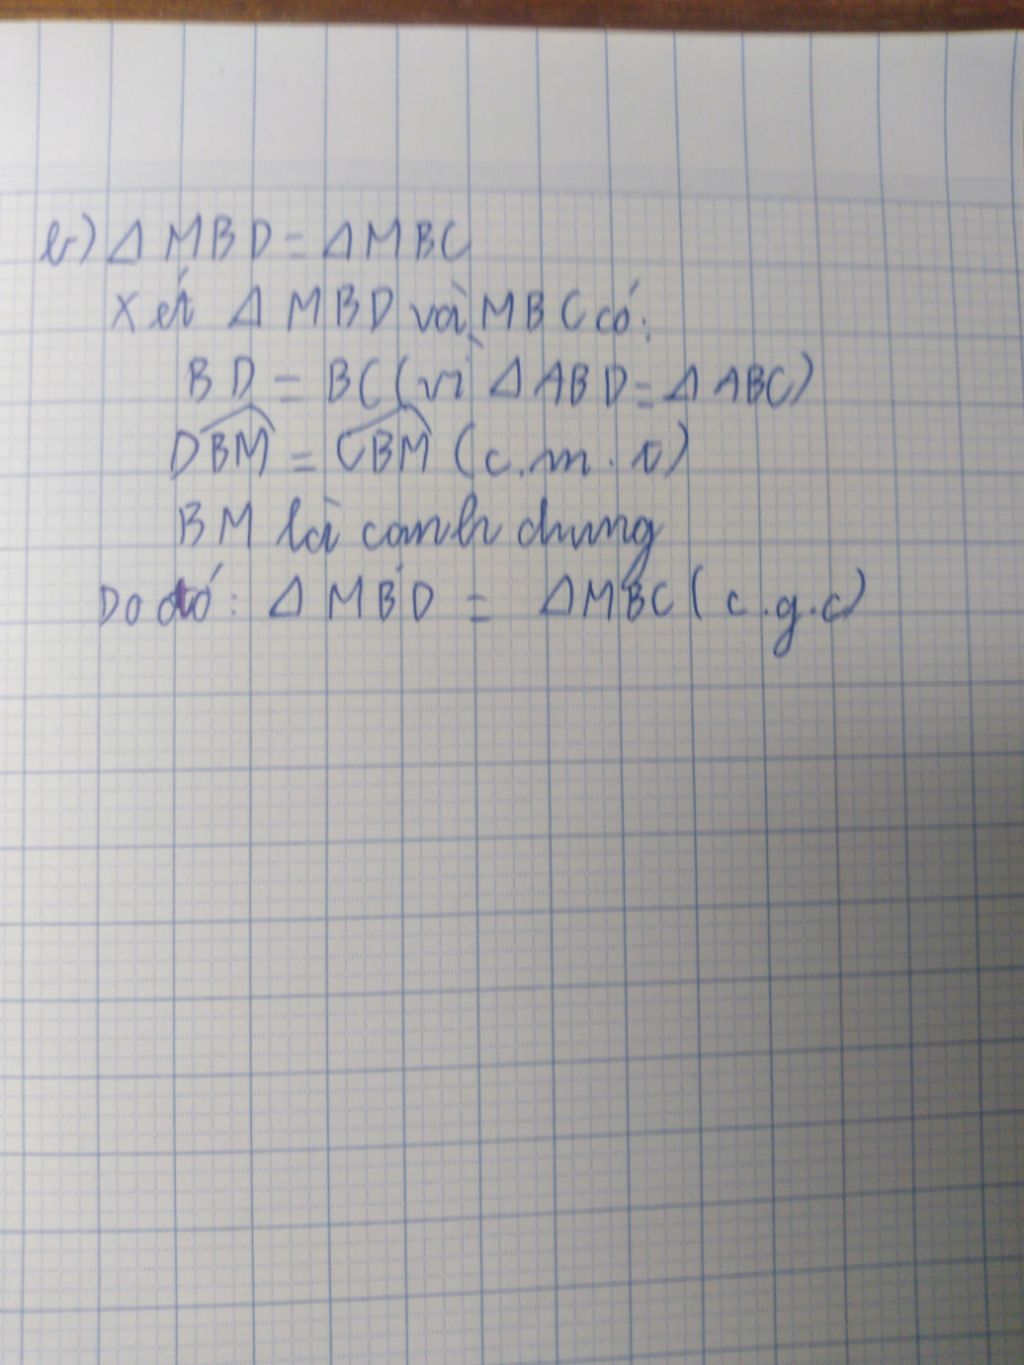 b) Δ MBD = Δ MBC
Xét Δ MBD và MBC có:
BD = BC (vì Δ ABD = Δ ABC)
DBM = CBM (c.m.t)
BM là cạnh chung
Do đó: Δ MBD = Δ MBC (c.g.c)